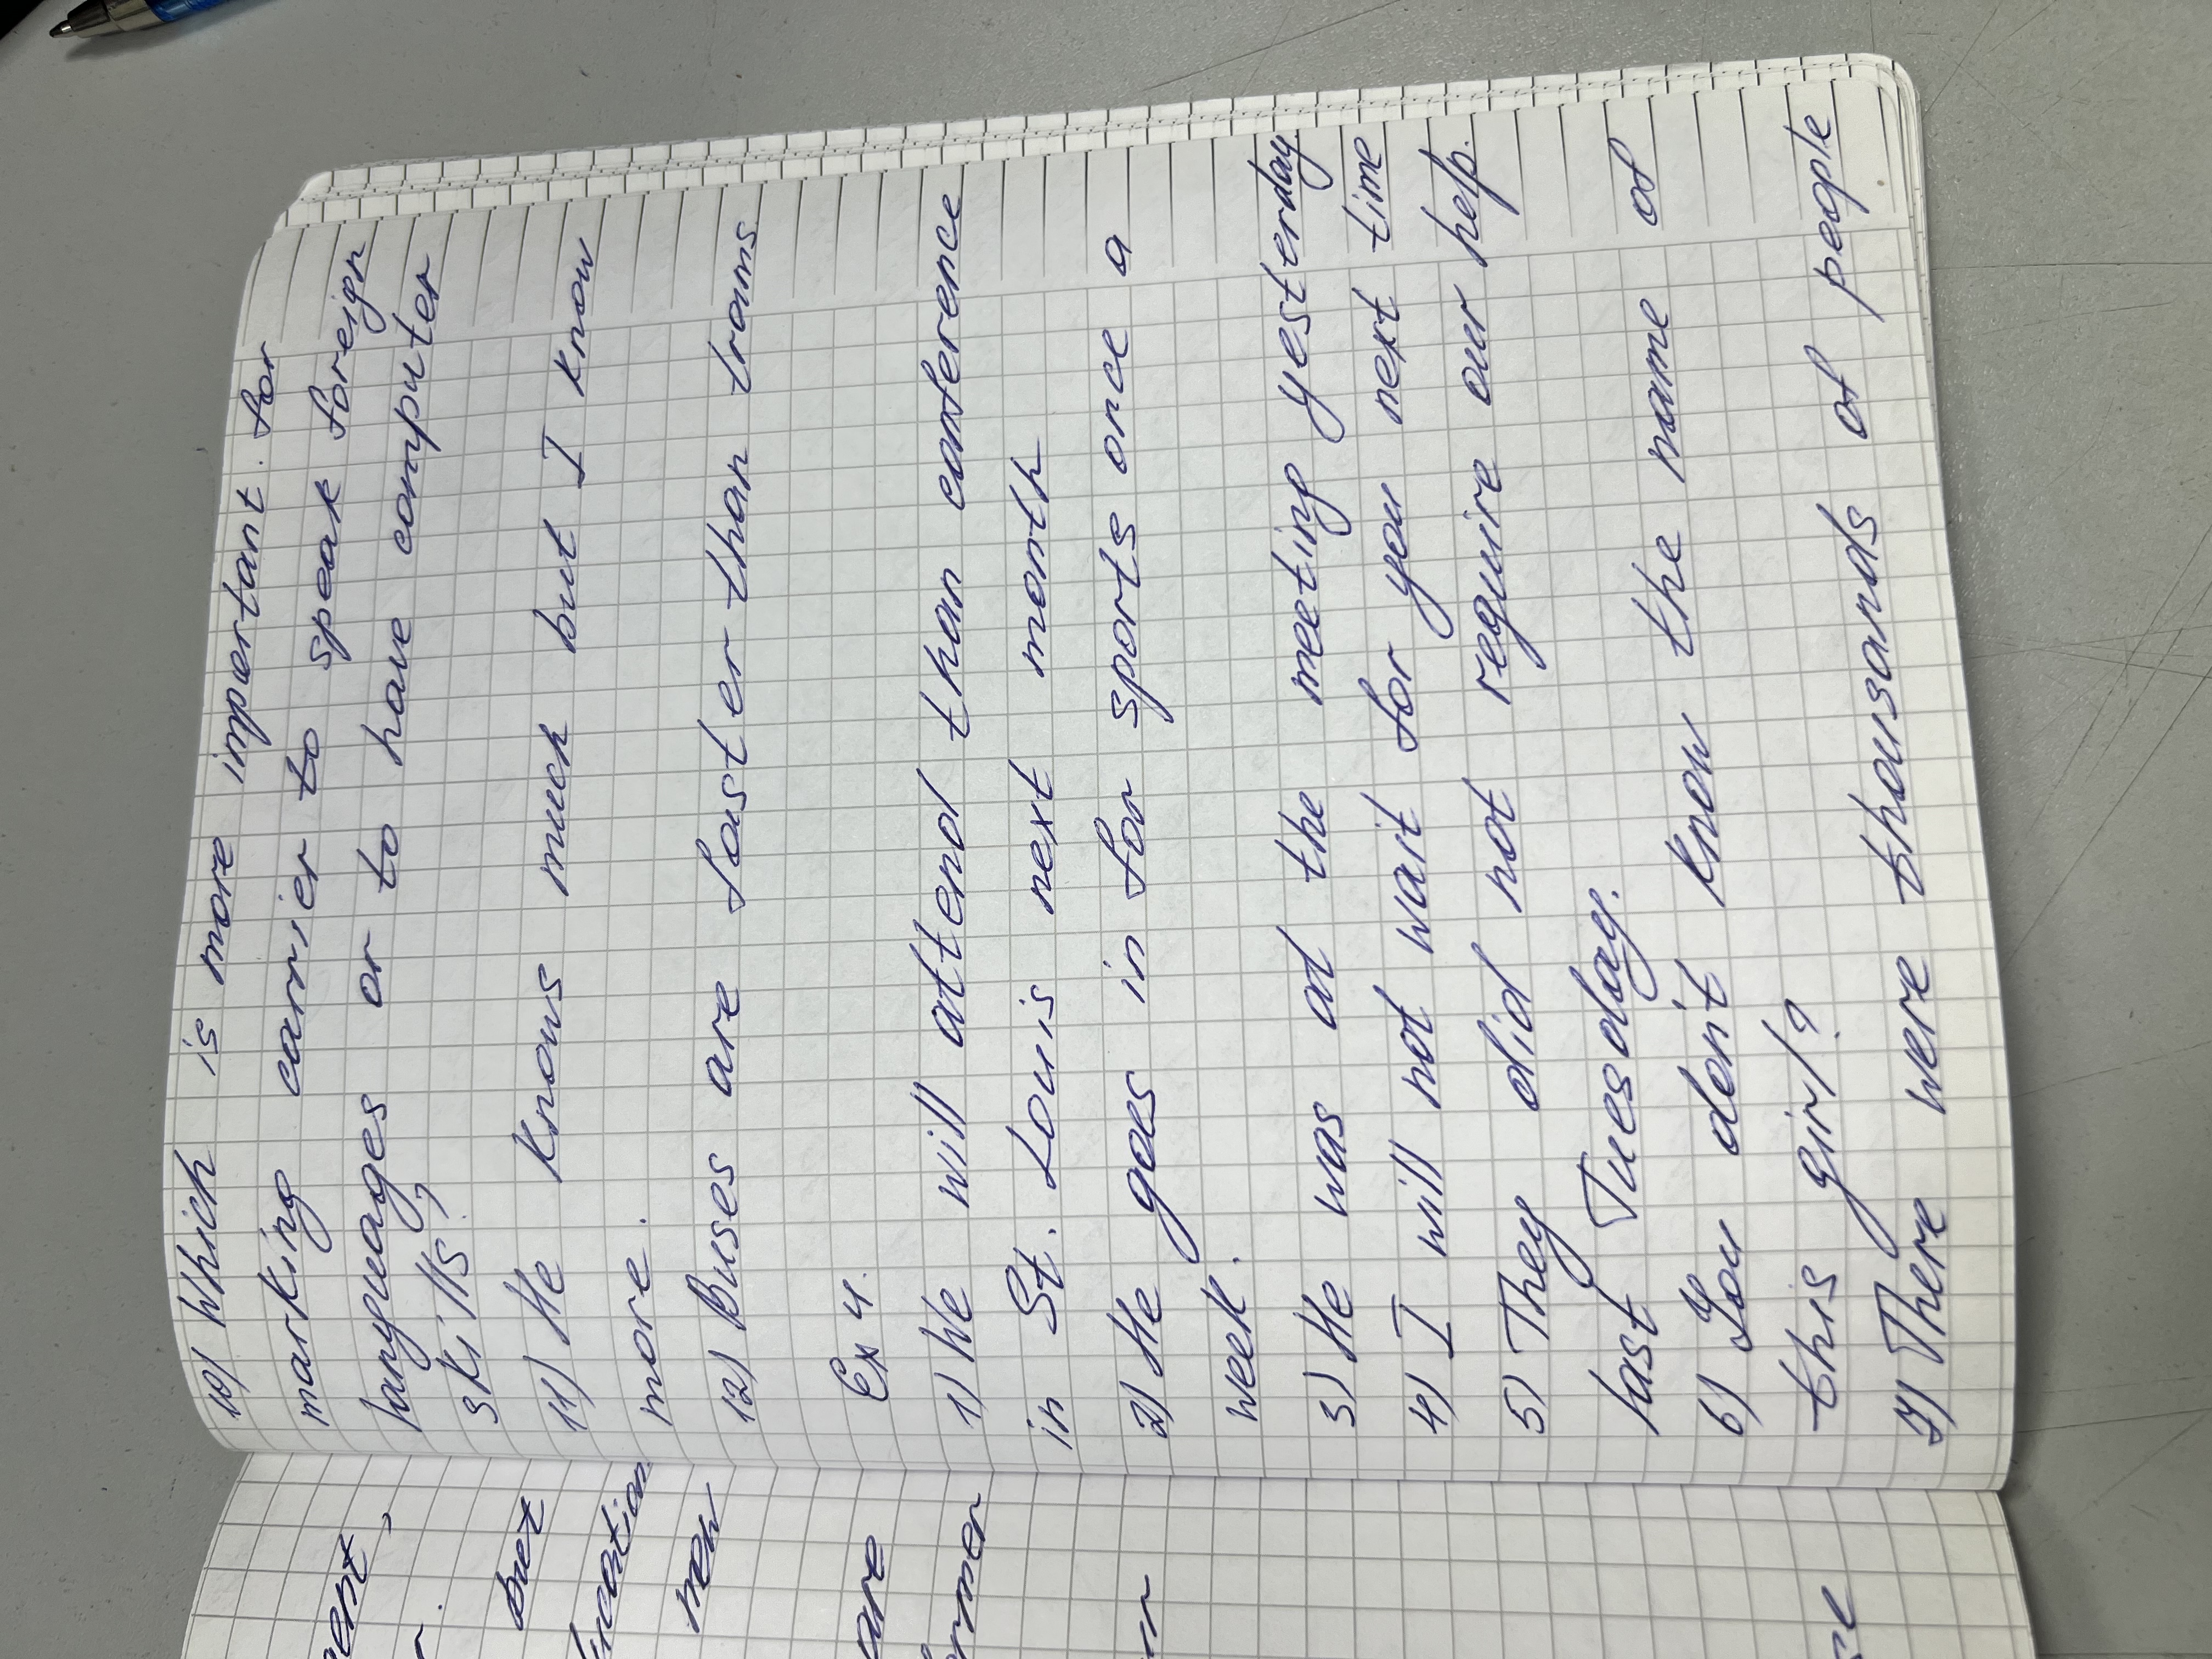 10) Which is more important for
marking carrier to speak foreign
languages or to have computer
skills?
11) He knows much but I know
more.
12) Buses are faster than trams
Ex 4.
1) We will attend than conference
in St. Louis next month
2) He goes in for sports once a
week.
3) He was at the meeting yesterday
4) I will not wait for you next time
5) They did not require our help.
last Tuesday.
6) You don't know the name of
this girl?
7) There were thousands of people
but
new
are